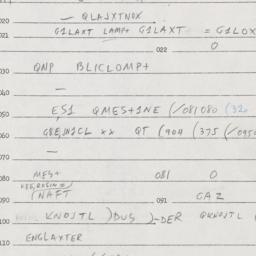 020 — QLAJXTNOX
021 G1LAXT LAMP+ G1LAXT = G1LOX
022 0
030 QNP BLICLOMP+
040 —
050 ES1 QMES+1NE (/081080 (32
060 XX QT (904 (375 /095
070 —
080 MES+ 081 0
(NAFT 091 GAZ
090
100 KNOJTL )DUS )-DER QKNOJTL
110 ENGLAXTER